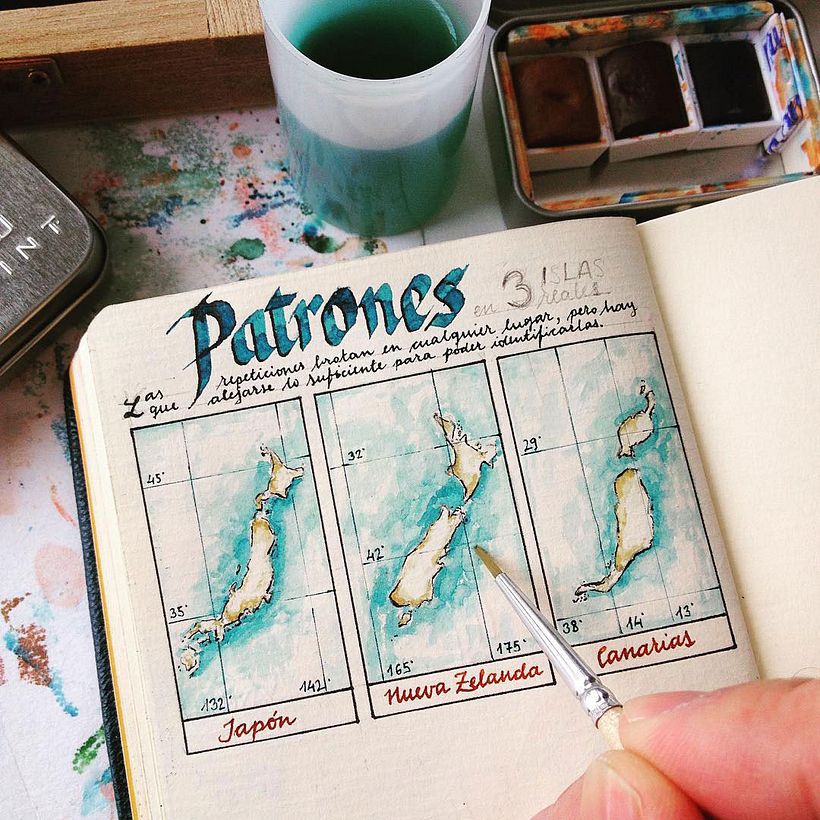 Patrones en 3 ISLAS
reales
Las repeticiones brotan en cualquier lugar, pero hay
que alejarse lo suficiente para poder identificarlas.
45°
35°
132°
142°
Japón
32°
42°
165°
175°
Nueva Zelanda
29°
38°
14°
13°
Canarias
INT